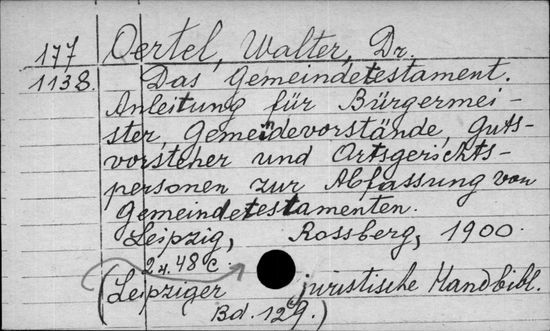 177 Oertel, Walter, Dr.
1138. Das Gemeindetestament.
Anleitung für Bürgermei-
ster, Gemeindevorstände, Guts-
vorsteher und Ortsgerichts-
personen zur Abfassung von
Gemeindetestamenten.
Leipzig, Rossberg, 1900.
48 c.
(Leipziger juristische Handbibl.
Bd. 129.)